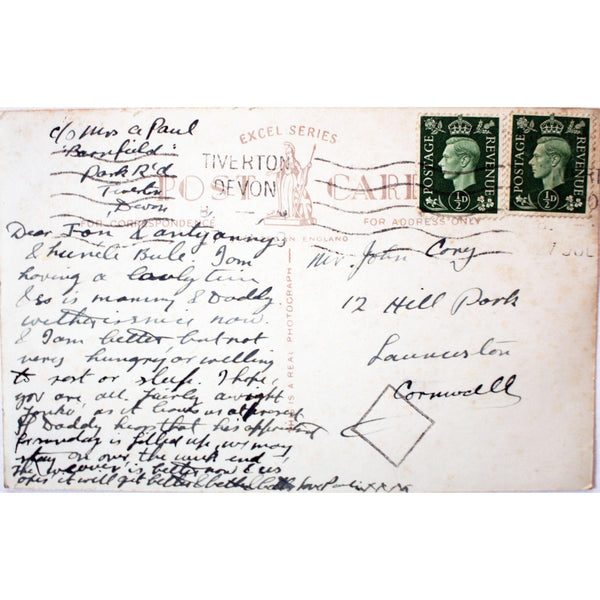 c/o Mrs a Paul
"Barnfield"
Park R'd
Tiverton
Devon
EXCEL SERIES
TIVERTON
DEVON
POST CARD
FOR CORRESPONDENCE
FOR ADDRESS ONLY
ENGLAND
THIS IS A REAL PHOTOGRAPH
POSTAGE
REVENUE
½D
POSTAGE
REVENUE
½D
JUL
Dear Jon & anty anny
& huncle Bule I am
having a lavly tim
& so is mammy & Daddy
wether is nice now.
& I am better but not
very hungry or willing
to rest or sleep. I hope
you are all fairly a wright
as it at present
if Daddy heps that his appointment
for munday is filled up, we may
stay on over the week end
the weaver is better now & us
opes it will get better & better & better love
Mr John Corey
12 Hill Park
Launceston
Cornwall